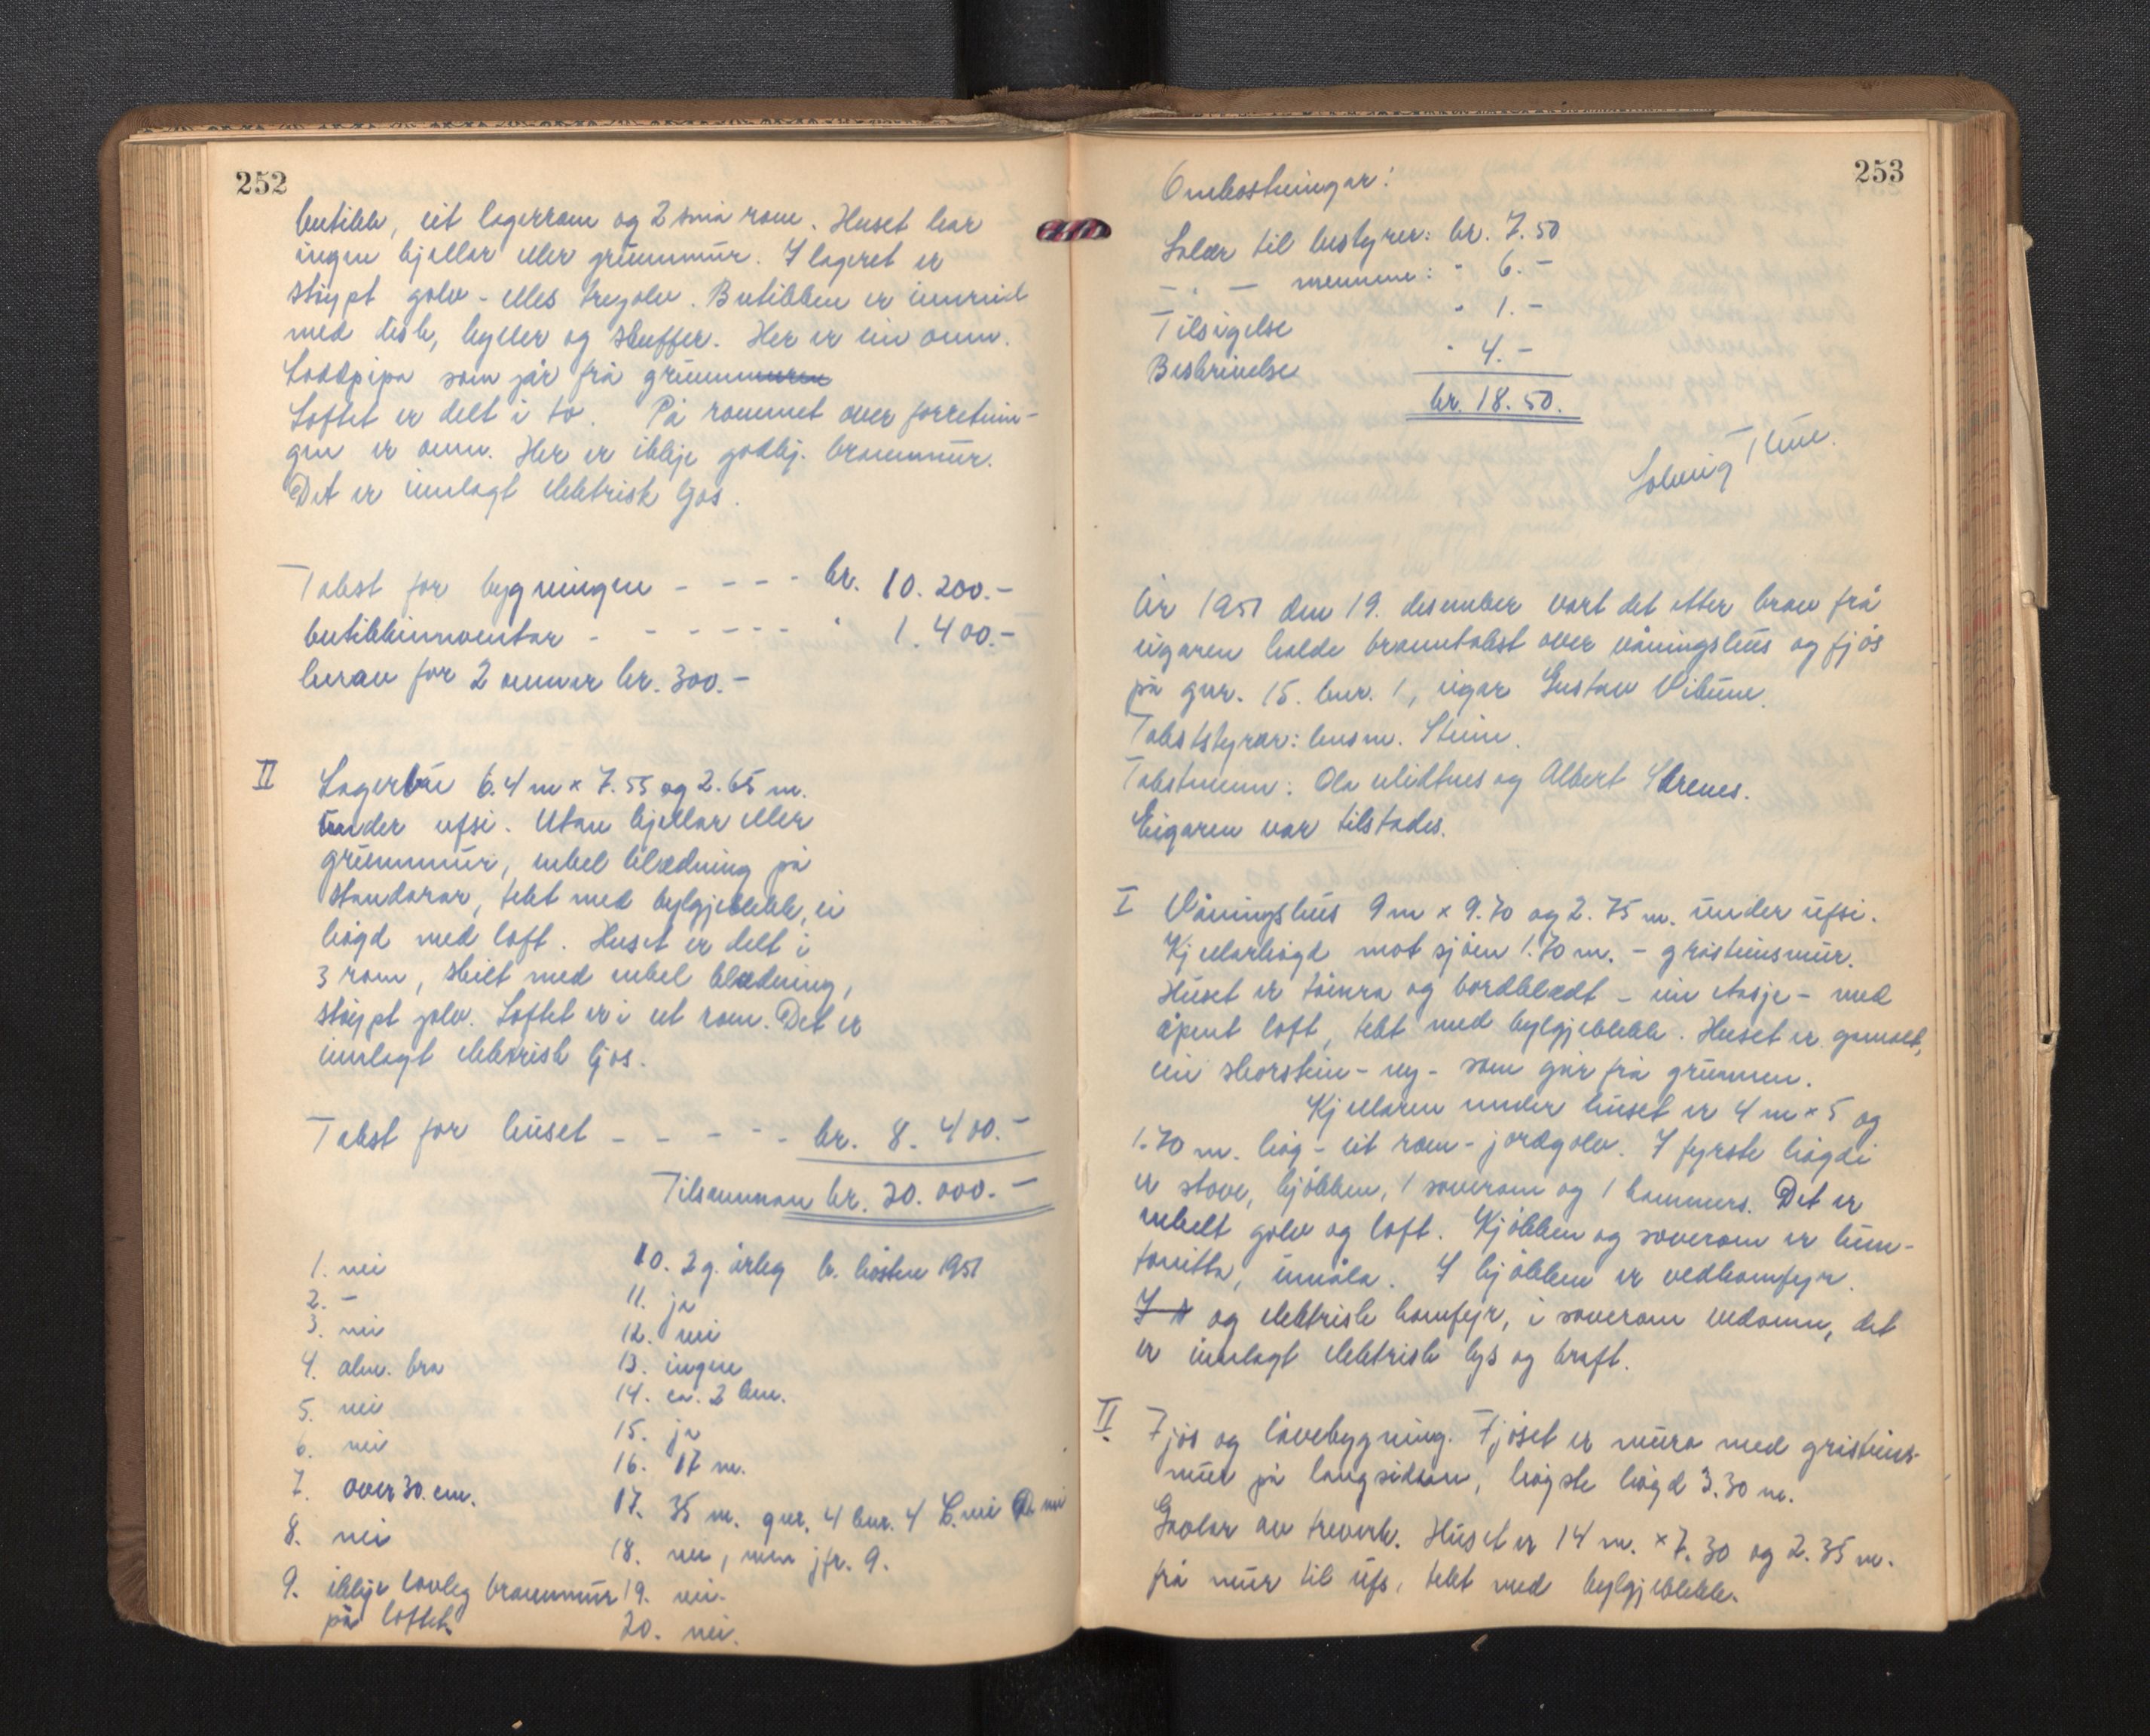 252
butikk, eit lagerrom og 2 små rom. Huset har
ingen kjellar eller grunnmur. I lageret er
støypt golv - elles tregolv. Butikken er innreid
med disk, hyller og skuffer. Her er ein omn.
Loddpipa som går frå grunnmuren
Loftet er delt i to. På rommet over forretnin-
gen er omn. Her er ikkje godkj. brannmur.
Det er innlagt elektrisk ljos.
Takst for bygningen - - - - kr. 10.200.-
butikkinnventar - - - - - - " 1.400.-
herav for 2 omnar kr. 300.-
II Lagerbu 6.4 m x 7.55 og 2.65 m.
under ufsi. Utan kjellar eller
grunnmur, enkel klædning på
standarar, tekt med bylgjeblekk, ei
høgd med loft. Huset er delt i
3 rom, skilt med enkel klædning,
støypt golv. Loftet er i eit rom. Det er
innlagt elektrisk ljos.
Takst for huset - - - - - kr. 8.400.-
Tilsamman kr. 20.000.-
1. nei
2. -
3. nei
4. alm. bra
5. nei
6. nei
7. over 30. cm.
8. nei
9. ikkje lovleg brannmur
på loftet.
10. 2 g. årleg h. hösten 1951
11. ja
12. nei
13. ingen
14. ca. 2 km.
15. ja
16. 17 m.
17. 35 m. gnr. 4 bnr. 4 C. nei D. nei
18. nei, men jfr. 9.
19. nei.
20. nei.
253
Omkostningar:
Salær til bestyrer: kr. 7.50
- " - mennene: " 6.-
Tilsigelse " 1.-
Beskrivelse " 4.-
kr. 18.50.
Solveig
År 1951 den 19. desember vart det etter krav frå
eigaren halde branntakst over våningshus og fjøs
på gnr. 15. bnr. 1, eigar Gustav Vikum.
Takststyrar: lensm.
Takstmenn: Ola Midtnes og Albert
Eigaren var tilstades.
I Våningshus 9 m x 9.70 og 2.75 m. under ufsi.
Kjellarhøgd mot sjøen 1.70 m. - gråsteinsmur.
Huset er tømra og bordklædt - ein etasje - med
åpent loft, tekt med bylgjeblekk. Huset er gamalt,
ein skorstein - ny - som går frå grunnen.
Kjellaren under huset er 4 m x 5 og
1.70 m. høg - eit rom - jordgolv. I fyrste høgdi
er stove, kjøkken, 1 soverom og 1 kammers. Det er
enkelt golv og loft. Kjøkken og soverom er hun-
tonitta, innåla. I kjøkken er vedkomfyr.
og elektrisk komfyr, i soverom vedomn, det
er innlagt elektrisk lys og kraft.
II Fjøs og løvebygning. Fjøset er mura med gråsteins-
mur på langsidan, høgste høgd 3.30 m.
Gavlar av treverk. Huset er 14 m. x 7.30 og 2.35 m.
frå mur til ufs, tekt med bylgjeblekk.